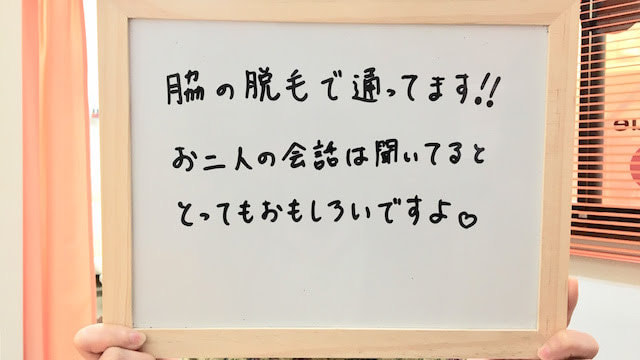 脇の脱毛で通ってます!!
お二人の会話は聞いてると
とってもおもしろいですよ♡